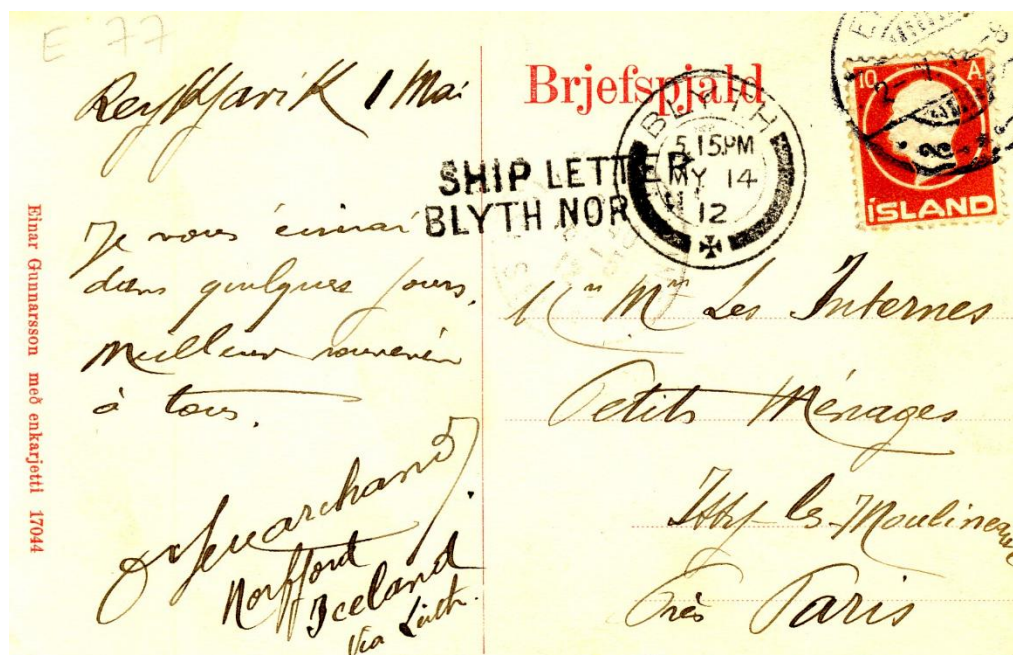 E 77
Reykjavik 1 Mai
Je vous écrirai
dans quelques jours.
Meilleur souvenir
à tous.
Norffiord
Iceland
Via Leith.
Einar Gunnarsson með enkarjetti 17044
Brjefspjald
SHIP LETTER
BLYTH NOR
BLYTH
5.15PM
MY 14
12
10 A
ÍSLAND
Les Internes
Petits Ménages
Issy-les-Moulineaux
Près Paris